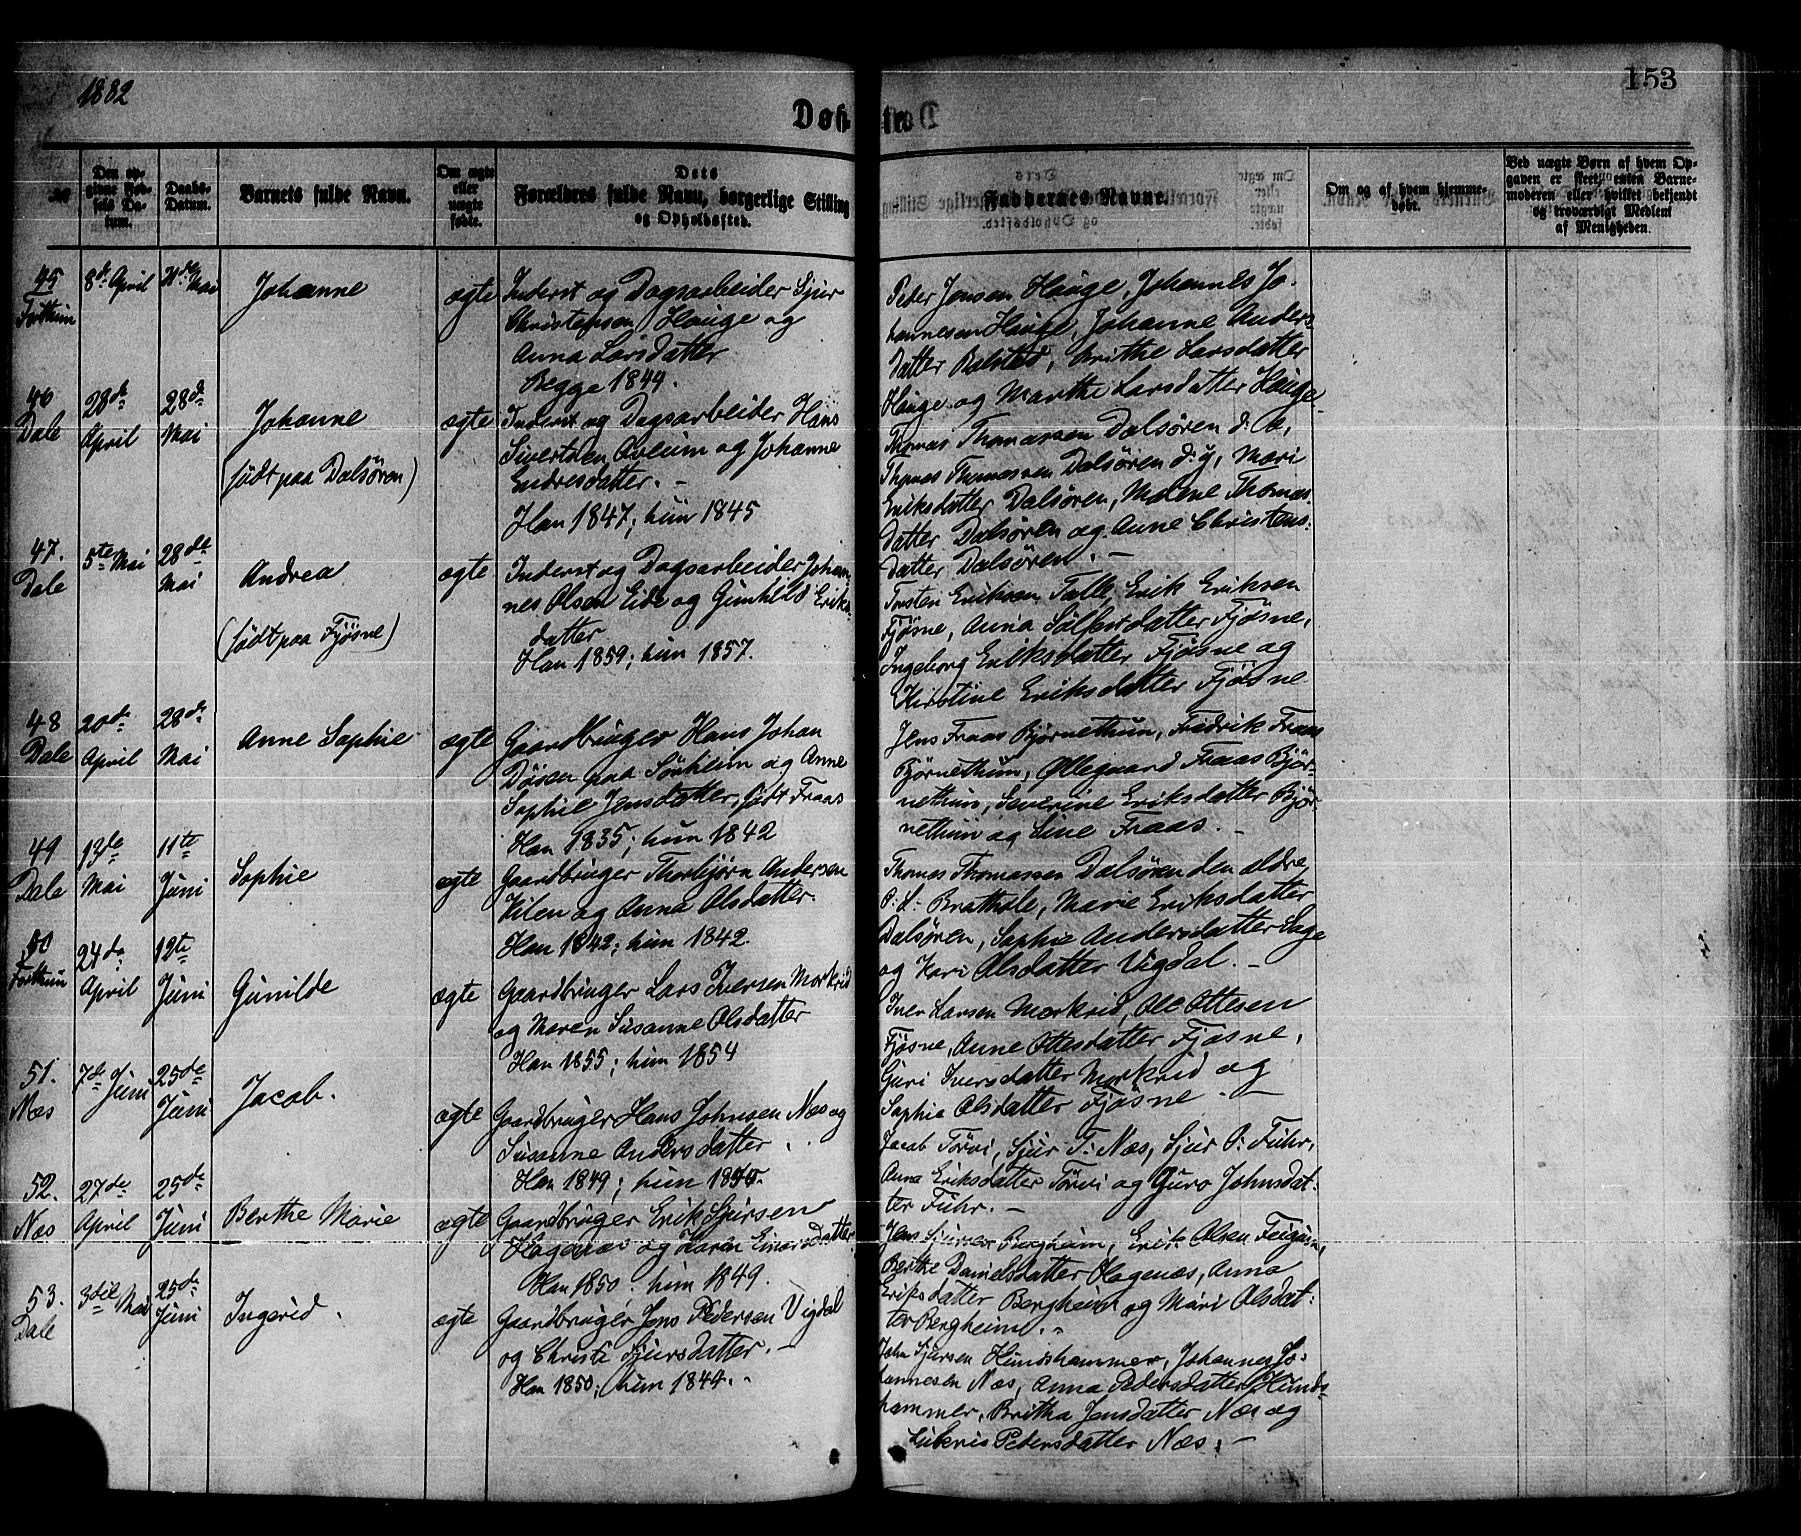 1882
153
Døbte
Den opgivne Fødsels Datum.
Daabs-Datum.
Barnets fulde Navn.
Om ægte eller uægte fødte.
Dets Forældres fulde Navn, borgerlige Stilling og Opholdssted.
Faddernes Navne.
Om og af hvem hjemmedøbt.
Ved uægte Børn af hvem Opgaven er skeet, enten Barnemoderen eller hvilket bekjendt og troværdigt Medlem af Menigheden.
45 8de April Mai Johanne ægte Inderst og Dagsarbeider Sjur
Christensen Hauge og
Anna Larsdatter
Begge 1844.
Peder Jensen Hauge, Johannes Jo-
hannesen Hauge, Johanne Anders-
datter Bolstad, Brithe Larsdatter
Hauge og Marthe Larsdatter Hauge
46 Dale 28de April 28de Mai Johanne
(født paa Dalsøren)
ægte Inderst og Dagsarbeider Hans
Sivertsen Aveum og Johanne
Endresdatter. -
Han 1847; hun 1845
Thomas Thomassen Dalsøren d. æ,
Thomas Thomassen Dalsøren d. y, Mari
Eriksdatter Dalsøren, Malene Thomas-
datter Dalsøren og Anne Christens-
datter Dalsøren. -
47. Dale 5te Mai 28de Mai Andrea
(født paa Fjøsne)
ægte Inderst og Dagsarbeider Johan-
nes Olsen Eide og Gunhild Eriks-
datter
Han 1859; hun 1857.
Torsten Eriksen Talle, Erik Eriksen
Fjøsne, Anna Salfestdatter Fjøsne,
Ingeborg Eriksdatter Fjøsne og
Kirstine Eriksdatter Fjøsne
48 Dale 20de April 28de Mai Anne Sophie ægte Gaardbruger Hans Johan
Døsen paa Sørheim og Anne
Sophie Jensdatter, født Fraas
Han 1835; hun 1842
Jens Fraas Bjørnethun, Fredrik Fraas
Bjørnethun, Øllegaard Fraas Bjør-
nethun, Severine Eriksdatter Bjør-
nethun og Sine Fraas. -
49 Dale 13de Mai 11te Juni Sophie ægte Gaardbruger Thorbjørn Andersen
Kilen og Anna Olsdatter.
Han 1842; hun 1842.
Thomas Thomassen Dalsøren den ældre,
Brathole, Marie Eriksdatter
Dalsøren, Sophie Andersdatter
og Kari Olsdatter Vigdal. -
50 Forthun 24de April 12te Juni Gunilde ægte Gaardbruger Lars Iversen Morkrid
og Maren Susanne Olsdatter
Han 1855; hun 1854
Iver Larsen Morkrid, Ole Ottesen
Fjøsne, Anne Ottesdatter Fjøsne,
Guri Iversdatter Morkrid og
Sophia Olsdatter Fjøsne. -
51. Næs 7de Juni 25de Juni Jacob. ægte Gaardbruger Hans Johnsen Næs og
Susanne Andersdatter
Han 1849; hun
Jacob Tørvi, Sjur T. Næs, Sjur O. Fuhr,
Anna Eriksdatter Tørvi og Guro Johnsdat-
ter Fuhr. -
52. Næs 27de April 25de Juni Berthe Marie ægte Gaardbruger Erik Sjursen
Hagenæs og Karen Einarsdatter
Han 1850. hun 1849.
Jens Sjursen Bergheim, Erik Olsen Feigum,
Berthe Danielsdatter Hagenæs, Anna
Eriksdatter Bergheim og Mari Olsdat-
ter Bergheim. -
53. Dale 3die Mai 25de Juni Ingerid. ægte Gaardbruger Jens Pedersen Vigdal
og Christi Sjursdatter. -
Han 1850; hun 1844. -
John Sjursen Hundshammer, Johannes Jo-
hannesen Næs, Anna Pedersdatter Hunds-
hammer, Britha Jensdatter Næs og
Lukris Pedersdatter Næs. -